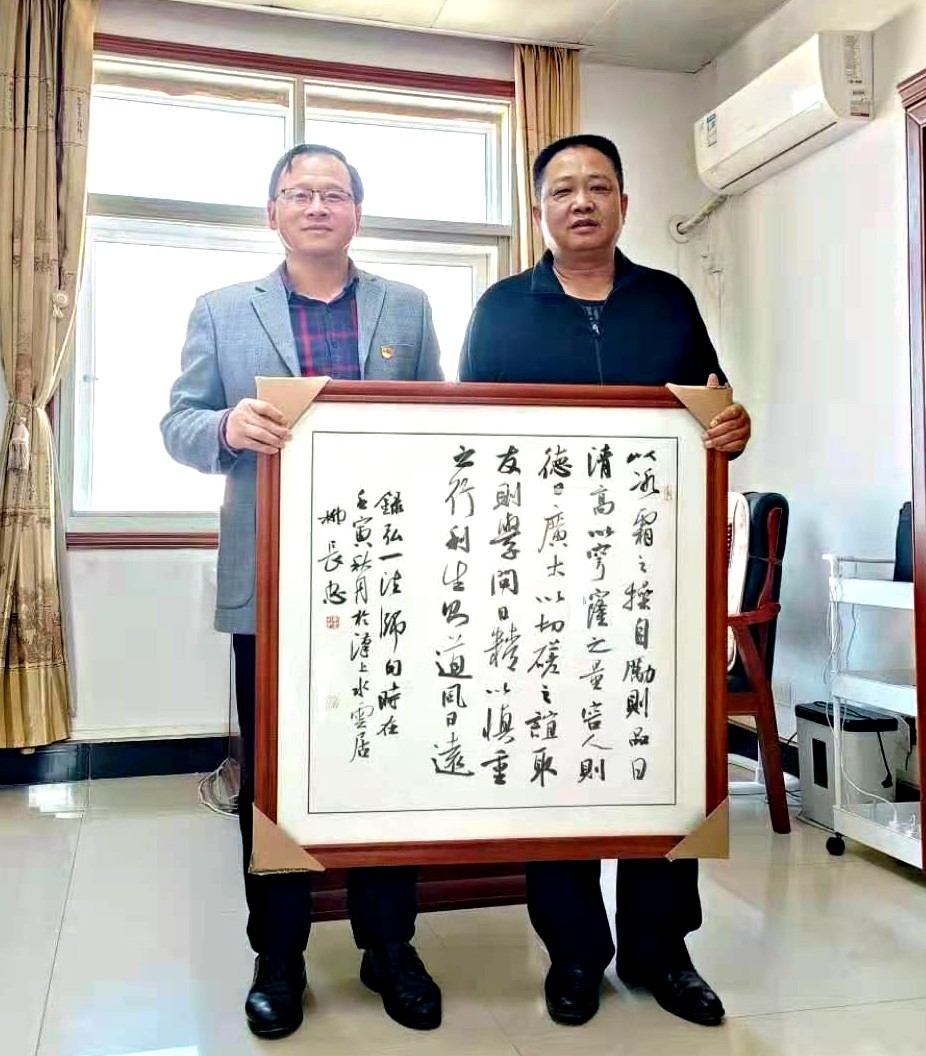 以冰霜之操自勵則品日
清高以穹窿之量容人則
德日廣大以切磋之誼取
友則學問日精以慎重
之行利生則道風日遠
錄弘一法師句時在
壬寅秋月於澴上水雲居
柳長忠